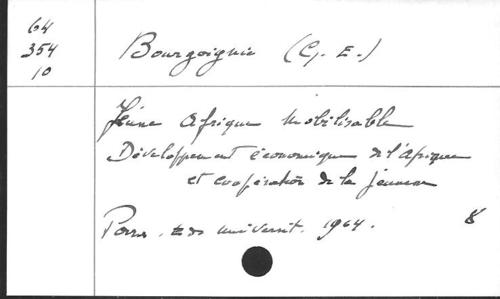 64
354
10
Bourgoignie (G. E.)
Jeune Afrique mobilisable
Développement économique de l'Afrique
et coopération de la jeunesse
Paris, Eds universit. 1964.
8